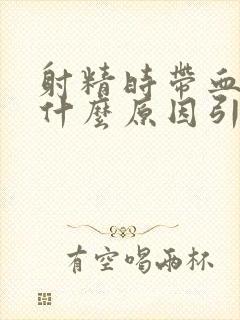 射精時帶血
什麼原因引
有空喝兩杯